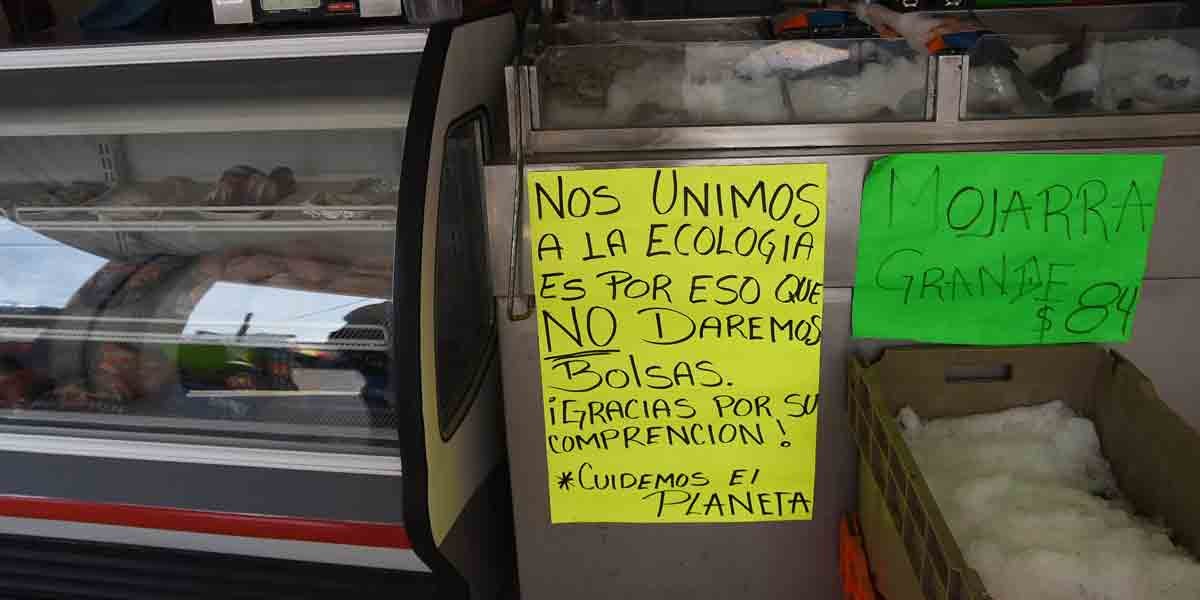 NOS UNIMOS
A LA ECOLOGIA
ES POR ESO QUE
NO DAREMOS
BOLSAS.
¡GRACIAS POR SU
COMPRENCION!
*CUIDEMOS El
PLANETA
MOJARRA
GRANDE
$84